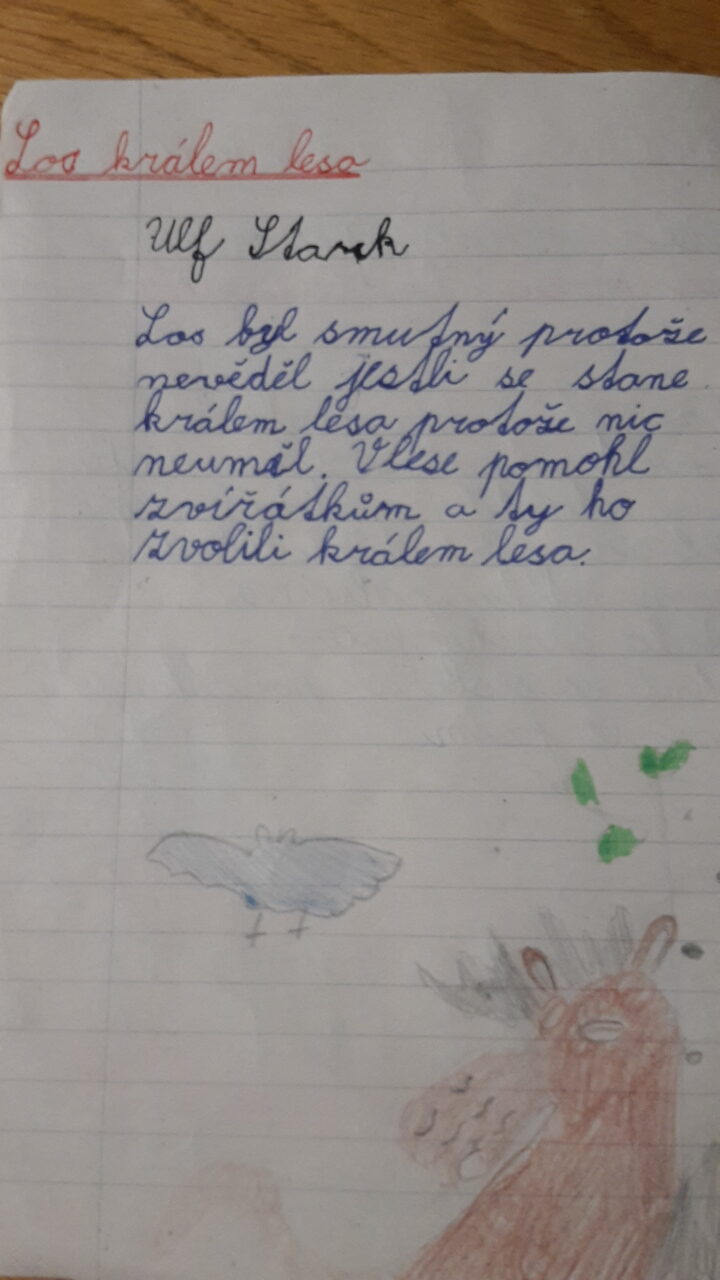 Los králem lesa
Ulf Stark
Los byl smutný protože
nevěděl jestli se stane
králem lesa protože nic
neumněl. Vlese pomohl
zvířátkům a ty ho
zvolili králem lesa.